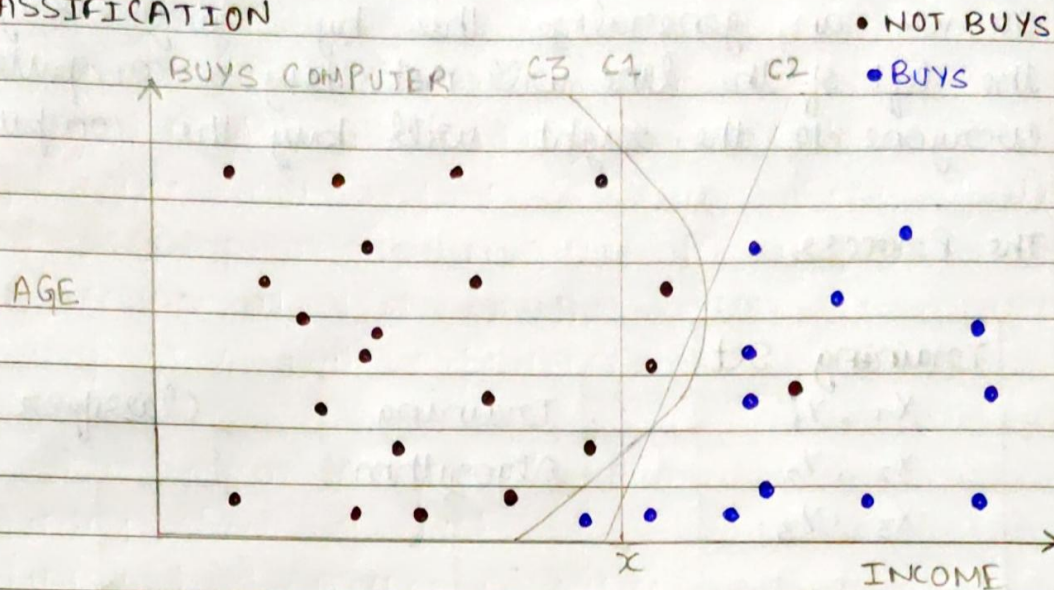 ASSIFICATION
• NOT BUYS
BUYS COMPUTER C3 C1 C2 • BUYS
AGE
x
INCOME